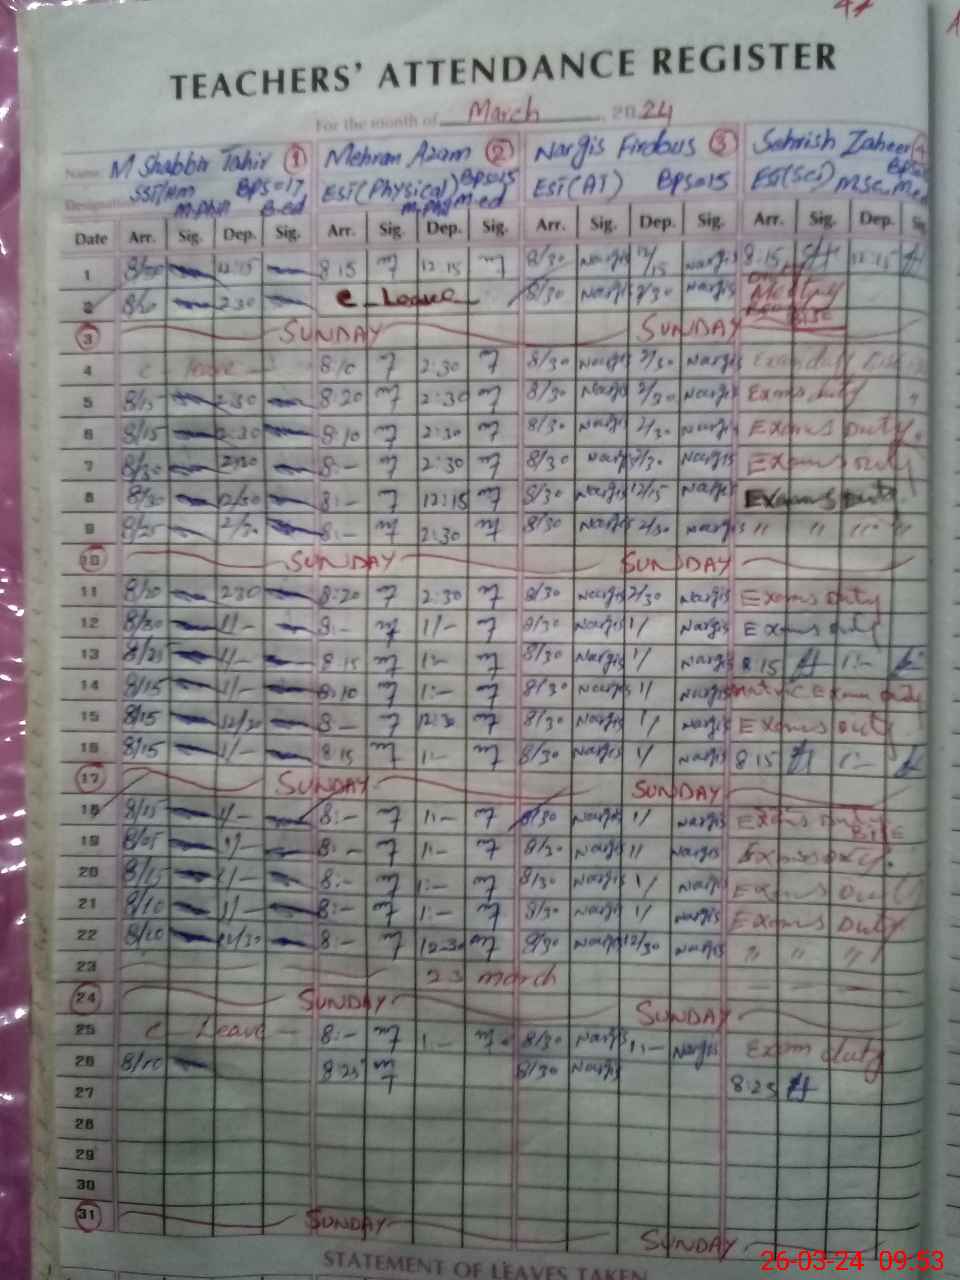 TEACHERS' ATTENDANCE REGISTER
For the month of March, 2024
Name M Shabbir Tahir 1 Mehran Azam 2 Nargis Firdous 3 Sehrish Zaheer
Designation SST/HM BPS=17 EST(Physical) BPS=15 EST(AT) BPS=15 EST(Sci) MSc
M.Phil B-ed M.Phil M-ed
Date Arr. Sig. Dep. Sig. Arr. Sig. Dep. Sig. Arr. Sig. Dep. Sig. Arr. Sig. Dep.
1 12:15 8 15 12:15 8/30 Nargis 12/15 Nargis 8:15 12:15
2 2 30 C Leave 8/30 Nargis 2/30 Nargis
3 SUNDAY SUNDAY
4 C leave 8:10 2:30 8/30 Nargis 2/30 Nargis Exam duty
5 8/15 2 30 8:20 2:30 8/30 Nargis 2/30 Nargis Exams duty
6 8/15 2:30 8:10 2:30 8/30 Nargis 2/30 Nargis Exams Duty
7 8/30 2:30 8:- 2:30 8/30 Nargis 2/30 Nargis Exams duty
8 8/30 12/30 8:- 12:15 8/30 Nargis 12/15 Nargis Exams Duty
9 8/25 2/30 8:- 2:30 8/30 Nargis 2/30 Nargis " " " "
10 SUNDAY SUNDAY
11 8/20 2 30 8:20 2:30 8/30 Nargis 2/30 Nargis Exams duty
12 8/20 1/- 8:- 1/- 8/30 Nargis 1/ Nargis Exams duty
13 8/25 1/- 8 15 1:- 8/30 Nargis 1/ Nargis 8 15 1:-
14 8/15 1/- 8:10 1:- 8/30 Nargis 1/ Nargis Exam duty
15 8/15 12/30 8:- 12:30 8/30 Nargis 1/ Nargis Exams duty
16 8/15 1/- 8 15 1:- 8/30 Nargis 1/ Nargis 8 15 1:-
17 SUNDAY SUNDAY
18 8/15 1/- 8:- 1:- 8/30 Nargis 1/ Nargis Exams Duty
19 8/05 1/- 8:- 1:- 8/30 Nargis 1/ Nargis Exams duty
20 8/15 1/- 8:- 1:- 8/30 Nargis 1/ Nargis Exams Duty
21 8/10 1/- 8:- 1:- 8/30 Nargis 1/ Nargis Exams Duty
22 8/20 12/30 8:- 12:30 8/30 Nargis 12/30 Nargis " " "
23 23 March
24 SUNDAY SUNDAY
25 C Leave 8:- 1:- 8/30 Nargis 1:- Nargis Exam duty
26 8/10 8:25 8/30 Nargis 8:25
27
28
29
30
31 SUNDAY SUNDAY
STATEMENT OF LEAVES TAKEN
26-03-24 09:53